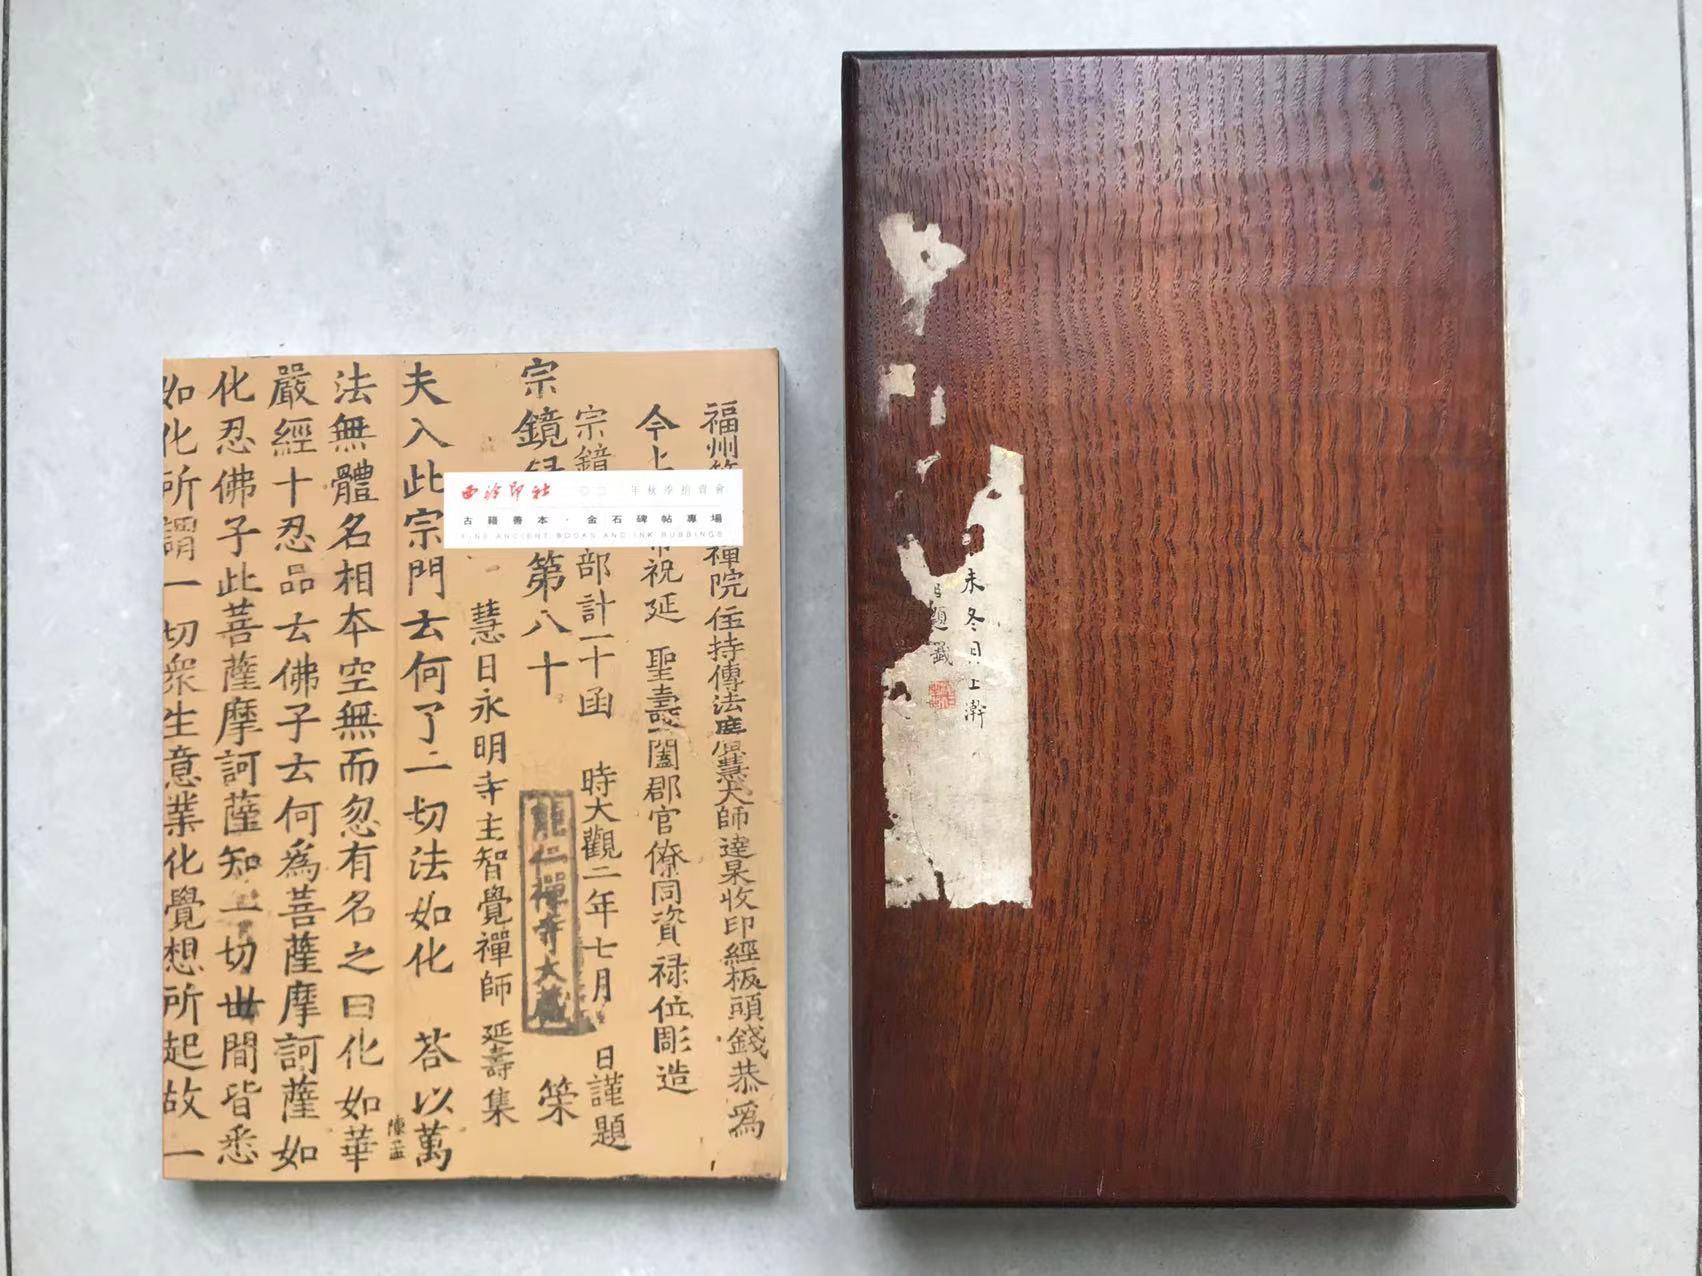 福州
禪院住持傳法慧大師達杲收印經板頭錢恭爲
今上
祝延 聖壽闔郡官僚同資禄位彫造
宗鏡
部計一十函 時大觀二年七月 日謹題
宗鏡
第八十 榮
能仁禪寺大藏
慧日永明寺主智覺禪師 延壽 集
夫入此宗門云何了一切法如化 荅以萬
陳孟
法無體名相本空無而忽有名之曰化如華
嚴經十忍品云佛子云何爲菩薩摩訶薩如
化忍佛子此菩薩摩訶薩知一切世間皆悉
如化所謂一切衆生意業化覺想所起故一
西泠印社
年秋季拍賣會
古籍善本·金石碑帖專場
FINE ANCIENT BOOKS AND INK RUBBINGS
未冬月上澣
題籤